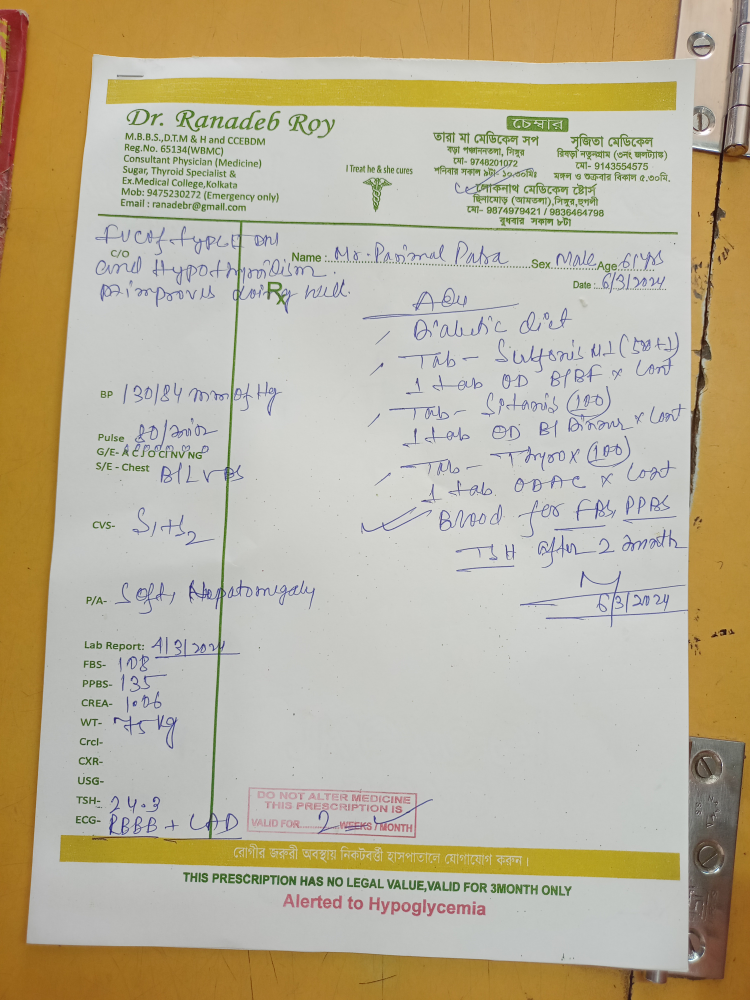 Dr. Ranadeb Roy
M.B.B.S.,D.T.M & H and CCEBDM
Reg.No. 65134(WBMC)
Consultant Physician (Medicine)
Sugar, Thyroid Specialist &
Ex.Medical College,Kolkata
Mob: 9475230272 (Emergency only)
Email : ranadebr@gmail.com
I Treat he & she cures
চেম্বার
তারা মা মেডিকেল সপ
বড়া পঞ্চাননতলা, সিঙ্গুর
মো- 9748201072
শনিবার সকাল ৯টা-১০.৩০মিঃ
সুজিতা মেডিকেল
রিষড়া নতুনগ্রাম (৩নং জলট্যাঙ্ক)
মো- 9143554575
মঙ্গল ও শুক্রবার বিকাল ৫.৩০মি.
লোকনাথ মেডিকেল ষ্টোর্স
ছিনামোড় (আমতলা),সিঙ্গুর,হুগলী
মো- 9874979421 / 9836464798
বুধবার সকাল ৮টা
Name : Mr. Parimal Patra Sex Male Age 61yrs
Date : 6/3/2024
C/O
FUC of type II DM
and Hypothyroidism
improves doing well.
Rx
Adv
Diabetic diet
Tab - M1 (500+1)
1 tab OD B/BF x Cont
Tab - Sitanis (100)
1 tab OD B/Dinner x Cont
Tab - Thyrox (100)
1 tab ODAC x Cont
Blood for FBS, PPBS
TSH after 2 month
6/3/2024
BP 130/84 mm of Hg
Pulse 80/min
G/E- A C J O CI NV NG
S/E - Chest B/L VBS
CVS- S1+S2
P/A- Soft, Hepatomegaly
Lab Report: 4/3/2024
FBS- 108
PPBS- 135
CREA- 1.06
WT- 75 kg
Crcl-
CXR-
USG-
TSH- 24.3
ECG- RBBB + LAD
DO NOT ALTER MEDICINE
THIS PRESCRIPTION IS
VALID FOR 2 WEEKS / MONTH
রোগীর জরুরী অবস্থায় নিকটবর্ত্তী হাসপাতালে যোগাযোগ করুন।
THIS PRESCRIPTION HAS NO LEGAL VALUE,VALID FOR 3MONTH ONLY
Alerted to Hypoglycemia